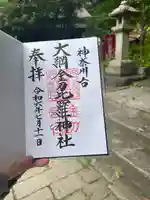 神奈川台
大綱金刀比羅神社
奉拝
令和六年七月十一日